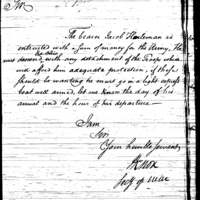 Sir
The bearer Jacob Harteman is
entrusted with a sum of money for the Army. He
must descend the Ohio with any detachment of the Troops which
will afford him adequate protection, if these
should be wanting he must go in a light express
boat well armed. let me know the day of his
arrival and the hour of his departure—
I am
Sir
Your humble servant
H Knox
Secy of War